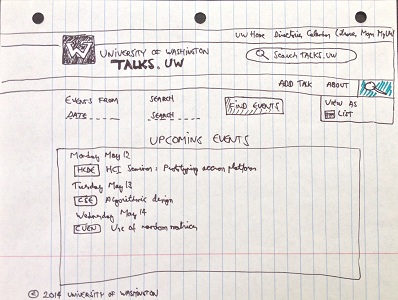 UW Home Directories Calendar Libraries Maps My UW
W
UNIVERSITY OF WASHINGTON
TALKS.UW
Search TALKS.UW
ADD TALK ABOUT
EVENTS FROM
DATE
SEARCH
SEARCH
FIND EVENTS
VIEW AS
LIST
UPCOMING EVENTS
Monday May 12
HCDE HCI Seminar: Prototyping
Tuesday May 13
CSE Algorithmic design
Wednesday May 14
Use of random machines
© 2014 UNIVERSITY OF WASHINGTON